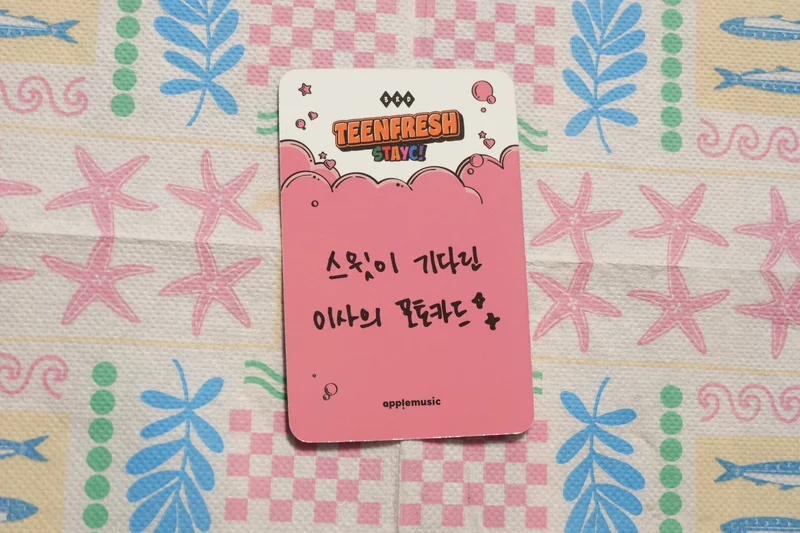 SKP
TEENFRESH
STAYC!
스윗이 기다린
이사의 포토카드
applemusic